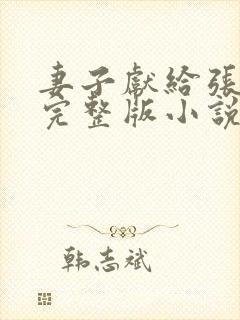 妻子獻給張
完整版小說
韩志斌